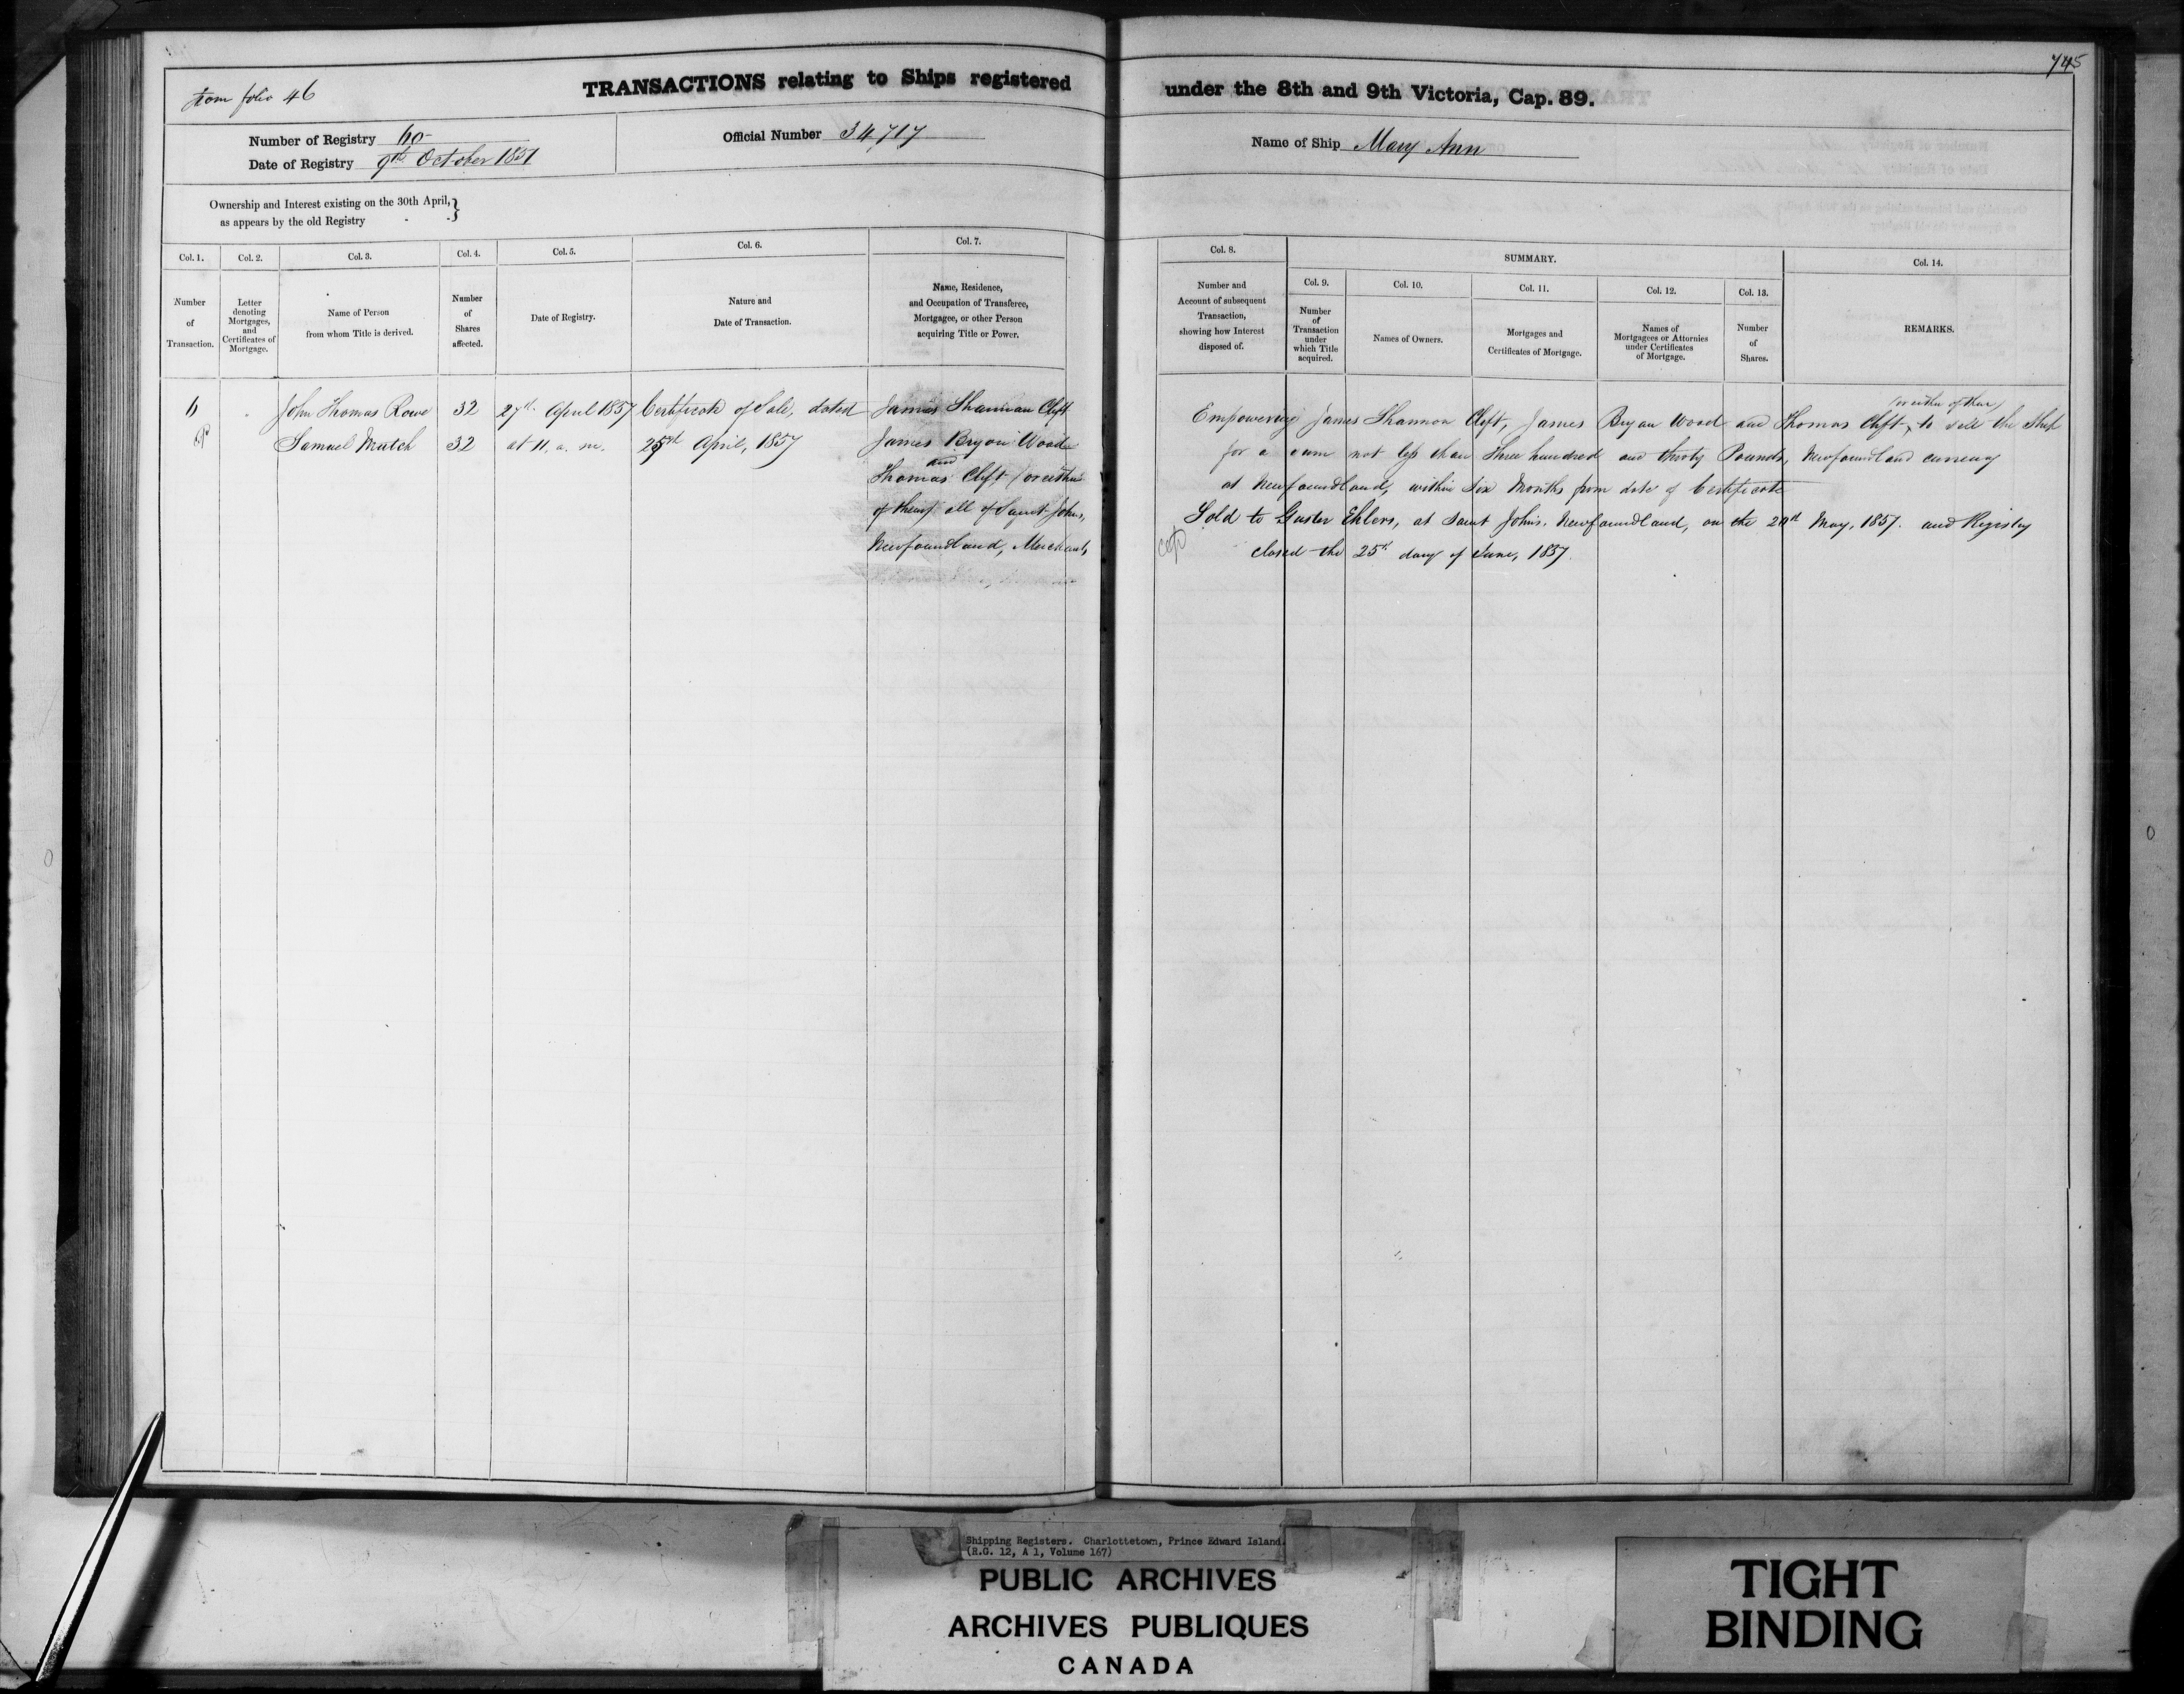 745
from folio 46
TRANSACTIONS relating to Ships registered under the 8th and 9th Victoria, Cap. 89.
Number of Registry 60
Date of Registry 9th October 1851
Official Number 34,717
Name of Ship Mary Ann
Ownership and Interest existing on the 30th April, }
as appears by the old Registry
Col. 1.
Number
of
Transaction.
Col. 2.
Letter
denoting
Mortgages,
and
Certificates of
Mortgage.
Col. 3.
Name of Person
from whom Title is derived.
Col. 4.
Number
of
Shares
affected.
Col. 5.
Date of Registry.
Col. 6.
Nature and
Date of Transaction.
Col. 7.
Name, Residence,
and Occupation of Transferee,
Mortgagee, or other Person
acquiring Title or Power.
Col. 8.
Number and
Account of subsequent
Transaction,
showing how Interest
disposed of.
SUMMARY.
Col. 9.
Number
of
Transaction
under
which Title
acquired.
Col. 10.
Names of Owners.
Col. 11.
Mortgages and
Certificates of Mortgage.
Col. 12.
Names of
Mortgagees or Attornies
under Certificates
of Mortgage.
Col. 13.
Number
of
Shares.
Col. 14.
REMARKS.
John Thomas Rowe 32 27th April 1857 Certificate of Sale, dated James Shannon Clift
Samuel Mutch 32 at 11. a. m. 25th April, 1857 James Bryan Wood
and
Thomas Clift (or either
of them) all of Saint Johns,
Newfoundland, Merchants
(or either of them)
Empowering James Shannon Clift, James Bryan Wood and Thomas Clift, to sell the Ship
for a sum not less than three hundred and thirty Pounds, Newfoundland currency
at Newfoundland, within six Months from date of Certificate
Sold to Gustav Ehlers, at Saint John's. Newfoundland, on the 20th May, 1857. and Registry
closed the 25th day of June, 1857.
Shipping Registers. Charlottetown, Prince Edward Island.
(R.G. 12, A 1, Volume 167)
PUBLIC ARCHIVES
ARCHIVES PUBLIQUES
CANADA
TIGHT
BINDING